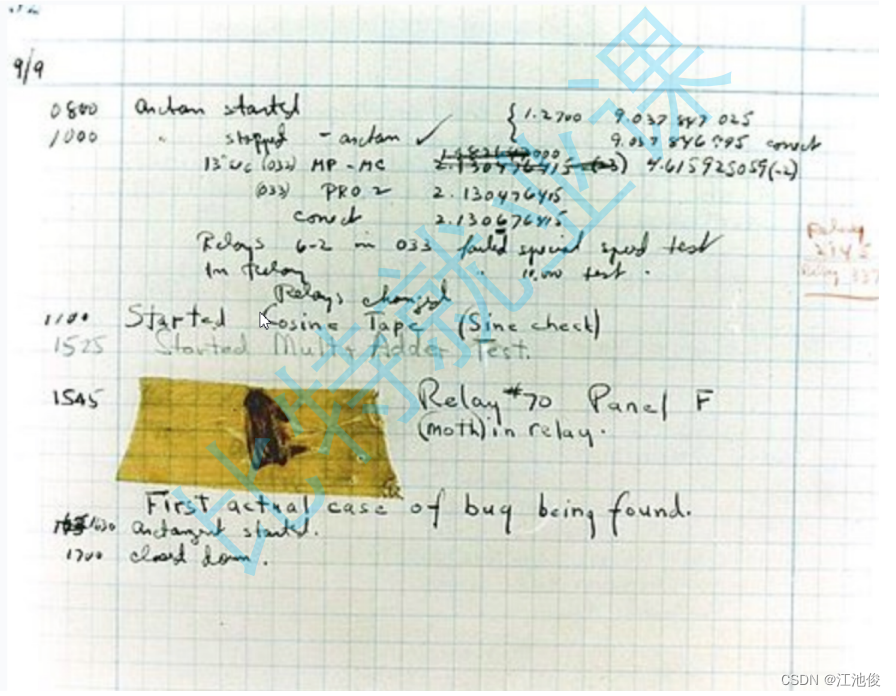 9/9
0800 arctan started { 1.2700 9.037 847 025
1000 " stopped - arctan ✓ 9.037 846 995 correct
13"uc (032) MP - MC 2.130476415 (-3) 4.615925059(-2)
(033) PRO 2 2.130476415
correct 2.130676415
Relays 6-2 in 033 failed special speed test
In relay " 11,000 test.
Relay
2145
Relay 337
Relays changed
1100 Started Cosine Tape (Sine check)
1525 Started Multi Adder Test.
1545 Relay #70 Panel F
(moth) in relay.
First actual case of bug being found.
1630 arctangent started.
1700 closed down.
比特就业课
CSDN @江池俊